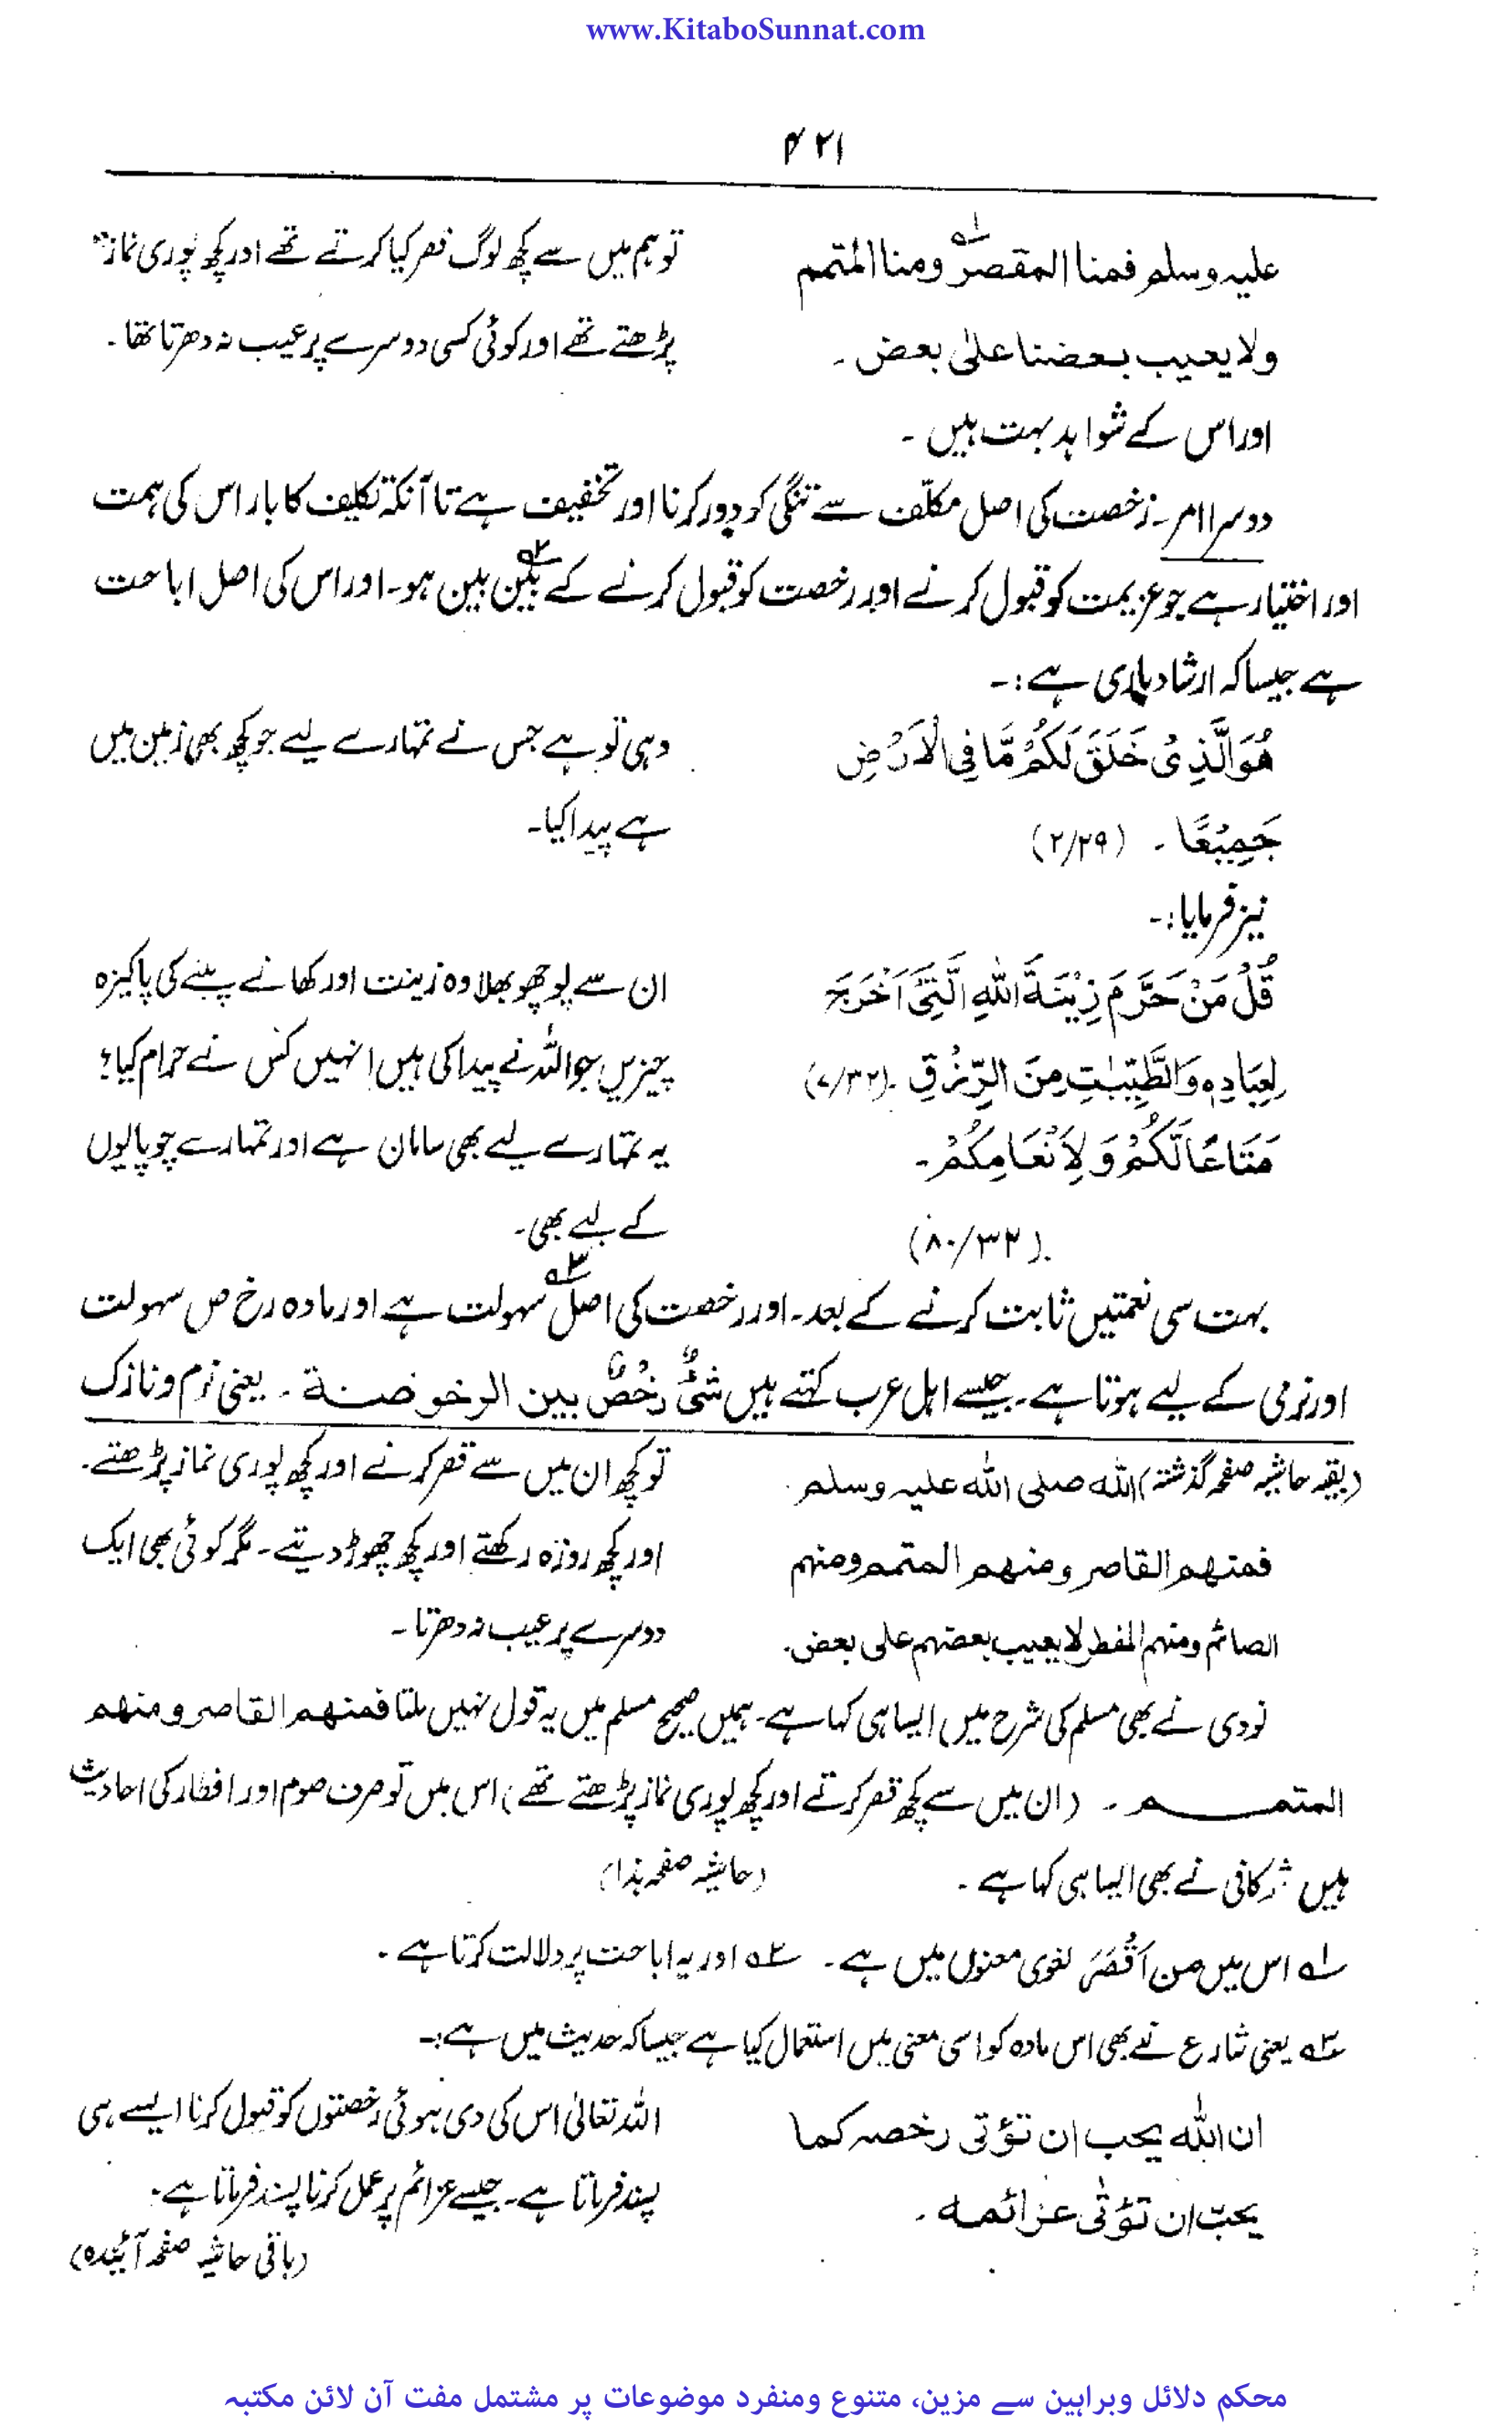 www.KitaboSunnat.com
۴۲۱
علیہ وسلم فمنا المقصر؂۱ ومنا المتمم
ولا یعیب بعضنا علیٰ بعض ۔
تو ہم میں سے کچھ لوگ قصر کیا کرتے تھے اور کچھ پوری نماز
پڑھتے تھے اور کوئی کسی دوسرے پر عیب نہ دھرتا تھا ۔
اور اس کے شواہد بہت ہیں ۔
دوسرا امر ۔ رخصت کی اصل مکلّف سے تنگی کو دور کرنا اور تخفیف ہے تا آنکہ تکلیف کا بار اس کی ہمت
اور اختیار ہے جو عزیمت کو قبول کرنے اور رخصت کو قبول کرنے کے بیّن؂۲ بین ہو۔ اور اس کی اصل اباحت
ہے جیسا کہ ارشاد باری ہے :۔
هُوَ الَّذِیْ خَلَقَ لَكُمْ مَّا فِی الْاَرْضِ
جَمِیْعًا ۔ (۲/۲۹)
وہی تو ہے جس نے تمہارے لیے جو کچھ بھی زمین میں
ہے پیدا کیا۔
نیز فرمایا :۔
قُلْ مَنْ حَرَّمَ زِیْنَةَ اللّٰهِ الَّتِیْٓ اَخْرَجَ
لِعِبَادِهٖ وَالطَّیِّبٰتِ مِنَ الرِّزْقِ ۔(۷/۳۲)
مَتَاعًا لَّكُمْ وَ لِاَنْعَامِكُمْ ۔
(۸۰/۳۲)
ان سے پوچھو بھلا وہ زینت اور کھانے پینے کی پاکیزہ
چیزیں جو اللہ نے پیدا کی ہیں انہیں کس نے حرام کیا؟
یہ تمہارے لیے بھی سامان ہے اور تمہارے چوپایوں
کے لیے بھی۔
بہت سی نعمتیں ثابت کرنے کے بعد۔ اور رخصت کی اصل؂۳ سہولت ہے اور مادہ رخ ص سہولت
اور نرمی کے لیے ہوتا ہے۔ جیسے اہل عرب کہتے ہیں شیٌٔ رَخْصٌ بین الرخوضة ۔ یعنی نرم و نازک
(بقیہ حاشیہ صفحہ گذشتہ) اللہ صلی اللہ علیہ وسلم
فمنھم القاصر ومنھم المتمم ومنھم
الصائم ومنھم المفطر لا یعیب بعضھم علی بعض۔
تو کچھ ان میں سے قصر کرنے اور کچھ پوری نماز پڑھتے۔
اور کچھ روزہ رکھتے اور کچھ چھوڑ دیتے ۔ مگر کوئی بھی ایک
دوسرے پر عیب نہ دھرتا ۔
نودی نے بھی مسلم کی شرح میں ایسا ہی کہا ہے۔ ہمیں صحیح مسلم میں یہ قول نہیں ملتا فمنھم القاصر ومنھم
المتمم ۔ (ان میں سے کچھ قصر کرتے اور کچھ پوری نماز پڑھتے تھے) اس میں تو صرف صوم اور افطار کی احادیث
ہیں شوکانی نے بھی ایسا ہی کہا ہے ۔ (حاشیہ صفحہ ہذا)
؂۱ اس میں من اَقْصَرَ لغوی معنوں میں ہے ۔ ؂۲ اور یہ اباحت پر دلالت کرتا ہے ۔
؂۳ یعنی شارع نے بھی اس مادہ کو اسی معنی میں استعمال کیا ہے جیسا کہ حدیث میں ہے :۔
ان اللہ یحب ان تؤتی رخصہ کما
یحبّ ان تؤتٰی عزائمہ ۔
اللہ تعالیٰ اس کی دی ہوئی رخصتوں کو قبول کرنا ایسے ہی
پسند فرماتا ہے۔ جیسے عزائم پر عمل کرنا پسند فرماتا ہے۔
(باقی حاشیہ صفحہ آئیندہ)
محکم دلائل وبراہین سے مزین، متنوع ومنفرد موضوعات پر مشتمل مفت آن لائن مکتبہ